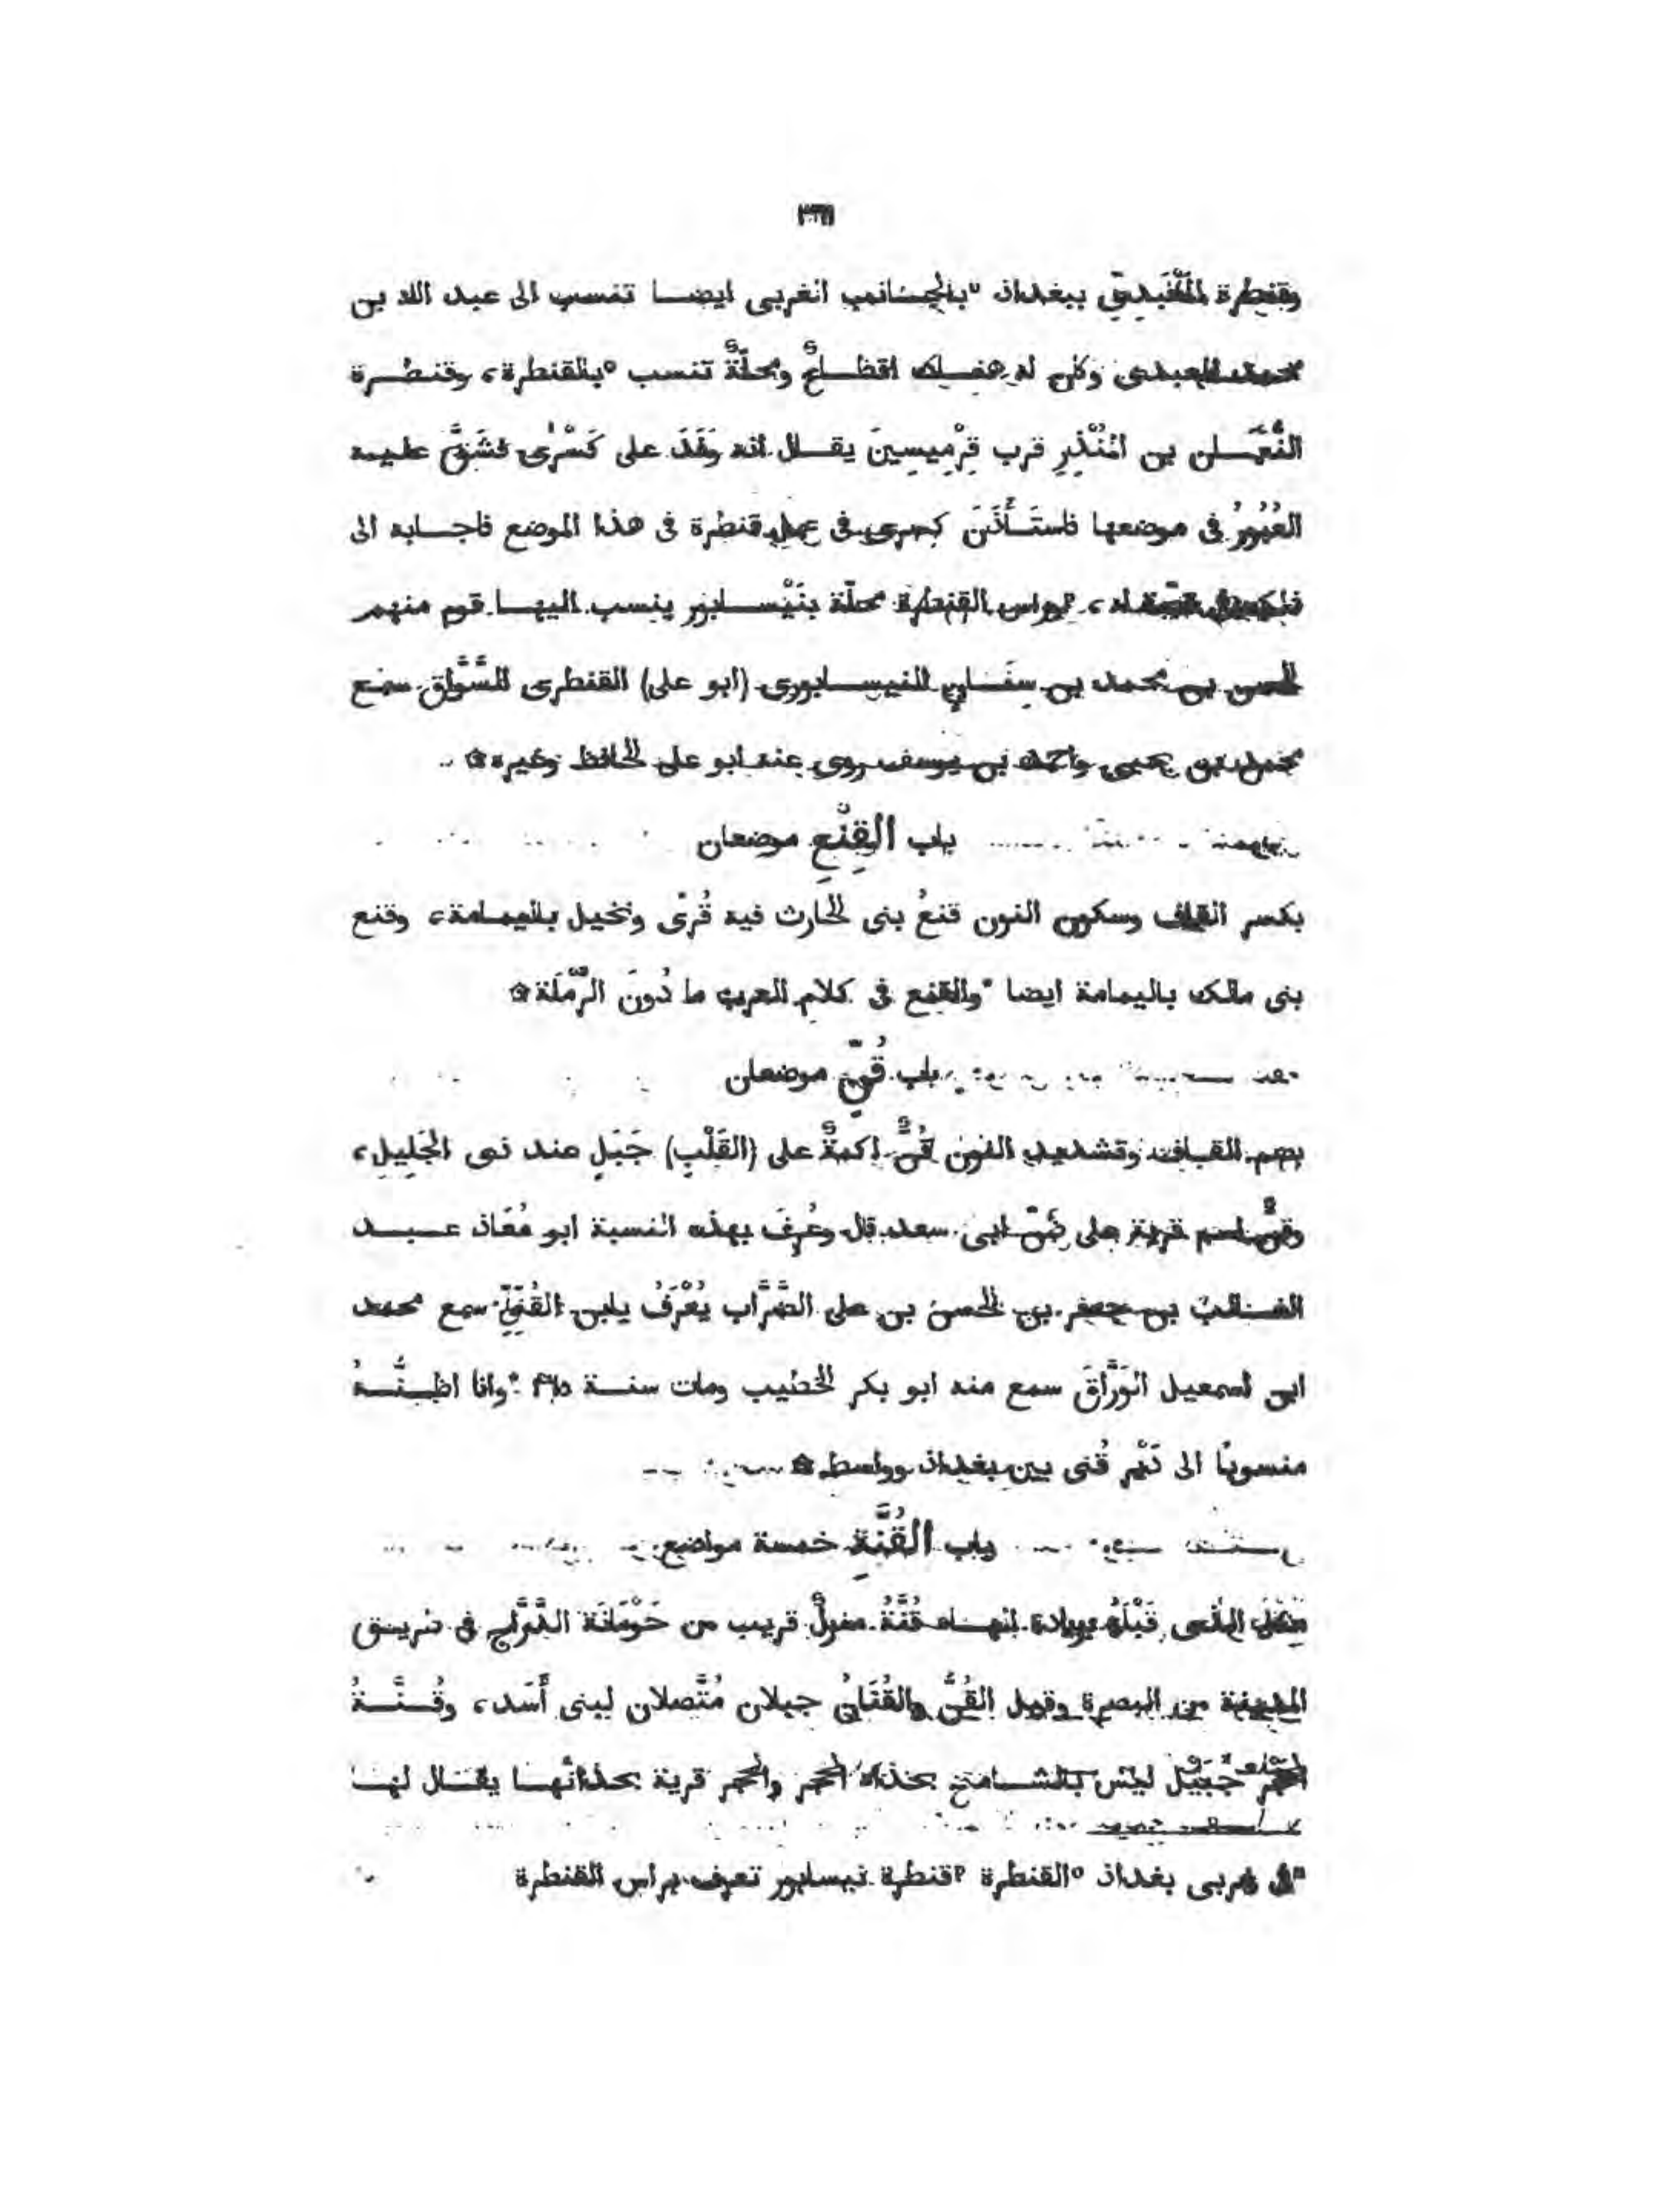 وقنطرة المَعْبَدِىّ ببغداذ ⁿبالجانب الغربى ايضا تنسب الى عبد الله بن
محمد المعبدى وكان له هناك اقطاعٌ ومحلّةٌ تنسب °بالقنطرة، وقنطرة
النُّعْمَان بن المُنْذِرِ قرب قِرْمِيسِينَ يقال انه وَفَدَ على كَسْرَى فشَقَّ عليه
العُبُورُ فى موضعها فاستَأْذَنَ كسرى فى عمل قنطرة فى هذا الموضع فاجابه الى
ᵖوراس القنطرة محلّة بنَيْسابور ينسب اليها قوم منهم
الحسن بن محمد بن سِنَانٍ النيسابورى (ابو على) القنطرى السَّوَّاق سمع
محمد بن يحيى واحمد بن يوسف روى عنه ابو على الحافظ وغيره ۞
باب القِنْعِ موضعان
بكسر القاف وسكون النون قنعُ بنى الحارث فيه قُرًى ونخيل باليمامة، وقنع
بنى مالك باليمامة ايضا *والقنع فى كلام العرب ما دُونَ الرَّمْلَة ۞
باب قُنٍّ موضعان
بضم القاف وتشديد النون قُنٌّ اكمةٌ على (القَلْبِ) جَبَلٍ عند ذى الجَلِيلِ،
وقنٌّ اسم قرية على ابى سعد قال وعُرِفَ بهذه النسبة ابو مُعَاذ عبد
الغالب بن جعفر بن الحسن بن على الضَّرَّاب يُعْرَفُ بابن القُنِّىّ سمع محمد
ابن اسمعيل الوَرَّاقَ سمع منه ابو بكر الخطيب ومات سنة *وانا اظنُّهُ
منسوبًا الى دَيْر قُنى بين بغداذ وواسط ۞
باب القُنَّةِ خمسة مواضع
مثل الذى قَبْلَهُ بزيادة هاء قُنَّةُ منزلٌ قريب من حَوْمَانَة الدَّرَّاج فى طريق
المدينة من البصرة وقيل القُنُّ والقُنَانُ جبلان مُتَّصلان لبنى أَسَد، وقُنَّةُ
الحجر جُبَيْلٌ ليس بالشامخ بحذاء الحجر والحجر قرية بحذائها يقال لها
غربى بغداذ °القنطرة ᵖقنطرة نيسابور تعرف براس القنطرة